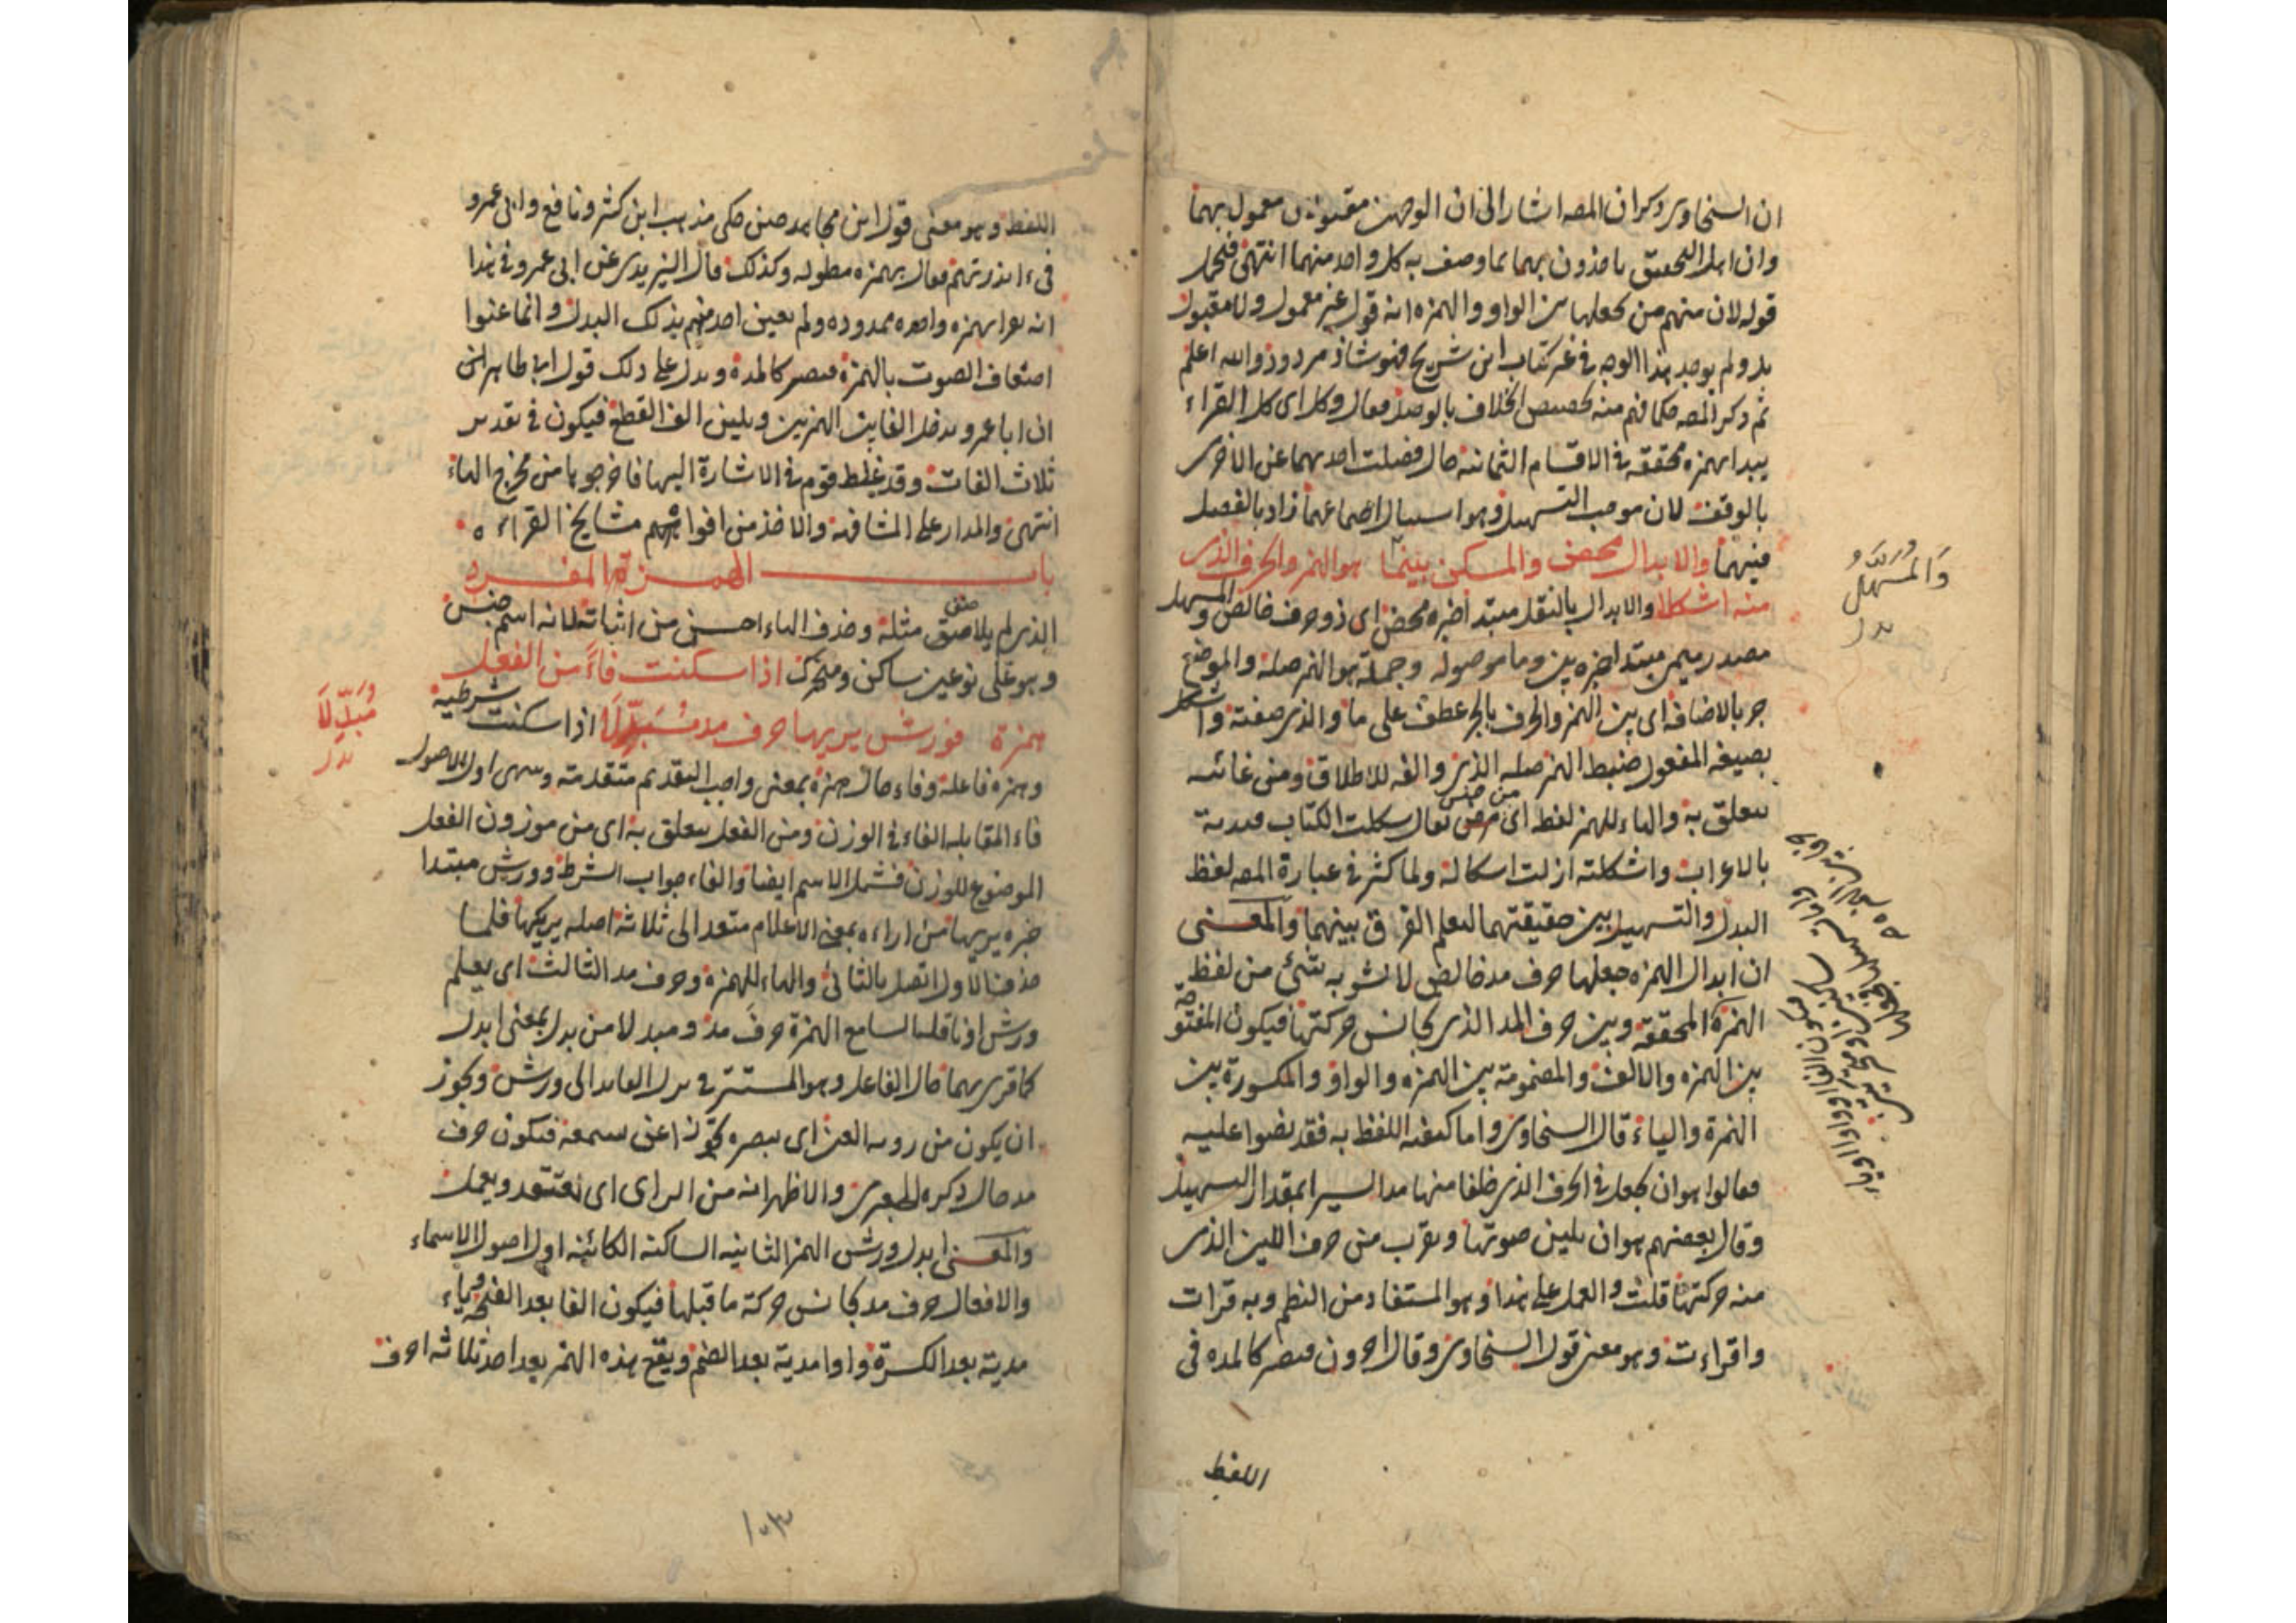 ان السخاوى ذكر ان المصه اشار الى ان الوجهين مقبولان معمول بهما
وان اهل التحقيق ياخذون بهما بما وصف به كل واحد منهما انتهى فيحمل
قوله لان منهم من يجعلها بين الواو والهمزه انه قول غير معمول ولا مقبول
بل ولم يوجد هذا الوجه فى غير كتاب ابن شريح فهو شاذ مردود والله اعلم
ثم ذكر المصه حكما فهم منه تخصيص الخلاف بالوصل فقال وكل اى كل القراء
يبدا بهمزه محققه فى الاقسام الثمانيه حال فصلت احديهما عن الاخرى
بالوقف لان موجب التسهيل وهو اجتماعهما زاد بالفصل
فيهما والابدال محض والمسكن بينما هو الهمز والحرف الذى
منه اشكلا والابدال بالنقل مبتدا خبره محض اى ذو حرف خالص والمسهل
مصدر ميمى مبتدا خبره بين وما موصوله وجملة هو الهمز صله والموضع
جر بالاضافه اى بين الهمز والحرف بالجر عطف على ما والذى صفته واشكل
بصيغه المفعول ضبط الهمز صله الذى والفه للاطلاق ومن غائيه
يتعلق به والهاء للهمز لفظ اى من جنس يقال شكلت الكتاب قيدته
بالاعراب واشكلته ازلت اشكاله ولما كثر فى عبارة المصه لفظ
البدل والتسهيل بين حقيقتهما ليعلم الفرق بينهما والمعنى
ان ابدال الهمزه جعلها حرف مد خالص لا يشوبه شئ من لفظ
الهمزة المحققه وبين حرف المد الذى يجانس حركتها فيكون المفتوحة
بين الهمزه والالف والمضمومة بين الهمزه والواو والمكسورة بين
الهمزة والياء قال السخاوى واما كيفيه اللفظ به فقد نصوا عليه
فقالوا هو ان يجعل فى الحرف الذى خلفا منها مدا يسيرا بمقدار التسهيل
وقال بعضهم هو ان يلين صوتها ويقرب من حرف اللين الذى
منه حركتها قلت والعمل على هذا وهو المستفاد من النظم وبه قرات
واقراءت وهو معنى قول السخاوى وقال اخرون فيصير كالمده فى
اللفظ
والمسهل
بدل
اللفظ وهو معنى قول ابن مجاهد حين حكى مذهب ابن كثير ونافع وابى عمرو
فى ءانذرتهم فقال بهمزه مطوله وكذلك قال اليزيدى عن ابى عمرو فى هذا
انه يقرا بهمزه واحده ممدوده ولم يعين احد منهم بذلك البدل وانما عنوا
اضعاف الصوت بالهمزة فيصير كالمدة ويدل على ذلك قول ابى طاهر
ان ابا عمرو يدخل الفا بين الهمزتين ويلين الف القطع فيكون فى تقدير
ثلاث الفات وقد غلط قوم فى الاشارة اليها فاخرجوها من مخرج الهاء
انتهى والمدار على المشافهه والاخذ من افواههم مشايخ القراء ه
باب الهمزة المفرد
الذى لم يلاصق مثله وحذف الهاء احسن من اثباته لانه اسم جنس
وهو على نوعين ساكن ومتحرك اذا سكنت فاءً من الفعل
همزة فورش يريها حرف مد مُبَدِّلَا اذا سكنت شرطيه
وهمزه فاعله وفاء حال همزة بمعنى واجب التقديم متقدمة وسمى اول الاصول
فاء المقابله الفاء فى الوزن ومن الفعل يتعلق به اى من موزون الفعل
الموضوع للوزن فشمل الاسم ايضا والفاء جواب الشرط وورش مبتدا
خبره يريها من اراءه بمعنى الاعلام متعد الى ثلاثة اصله يريكها فلما
حذف الاول اتصل بالثانى والهاء للهمزه وحرف مد الثالث اى يعلم
ورش او ناقلها السامع الهمزة حرف مد ومبدلا من بدل بمعنى ابدل
كما قرى بهما حال الفاعل وهو المستتر فى يرى العايد الى ورش ويجوز
ان يكون من رويه العين اى يبصره تجوزا عن يسمعه فيكون حرف
مد حال ذكره الجعبرى والاظهر انه من الراى اى يعتقد ويعمل
والمعنى ابدل ورش الهمز الثانيه الساكنه الكائنه اول اصول الاسماء
والافعال حرف مد يجانس حركة ما قبلها فيكون الفا بعد الفتح وياء
مدية بعد الكسرة واوا مدية بعد الضم ويقع هذه الهمز بعد احد ثلاثه احرف
مُبَدِّلَا
بدل
١٠٣